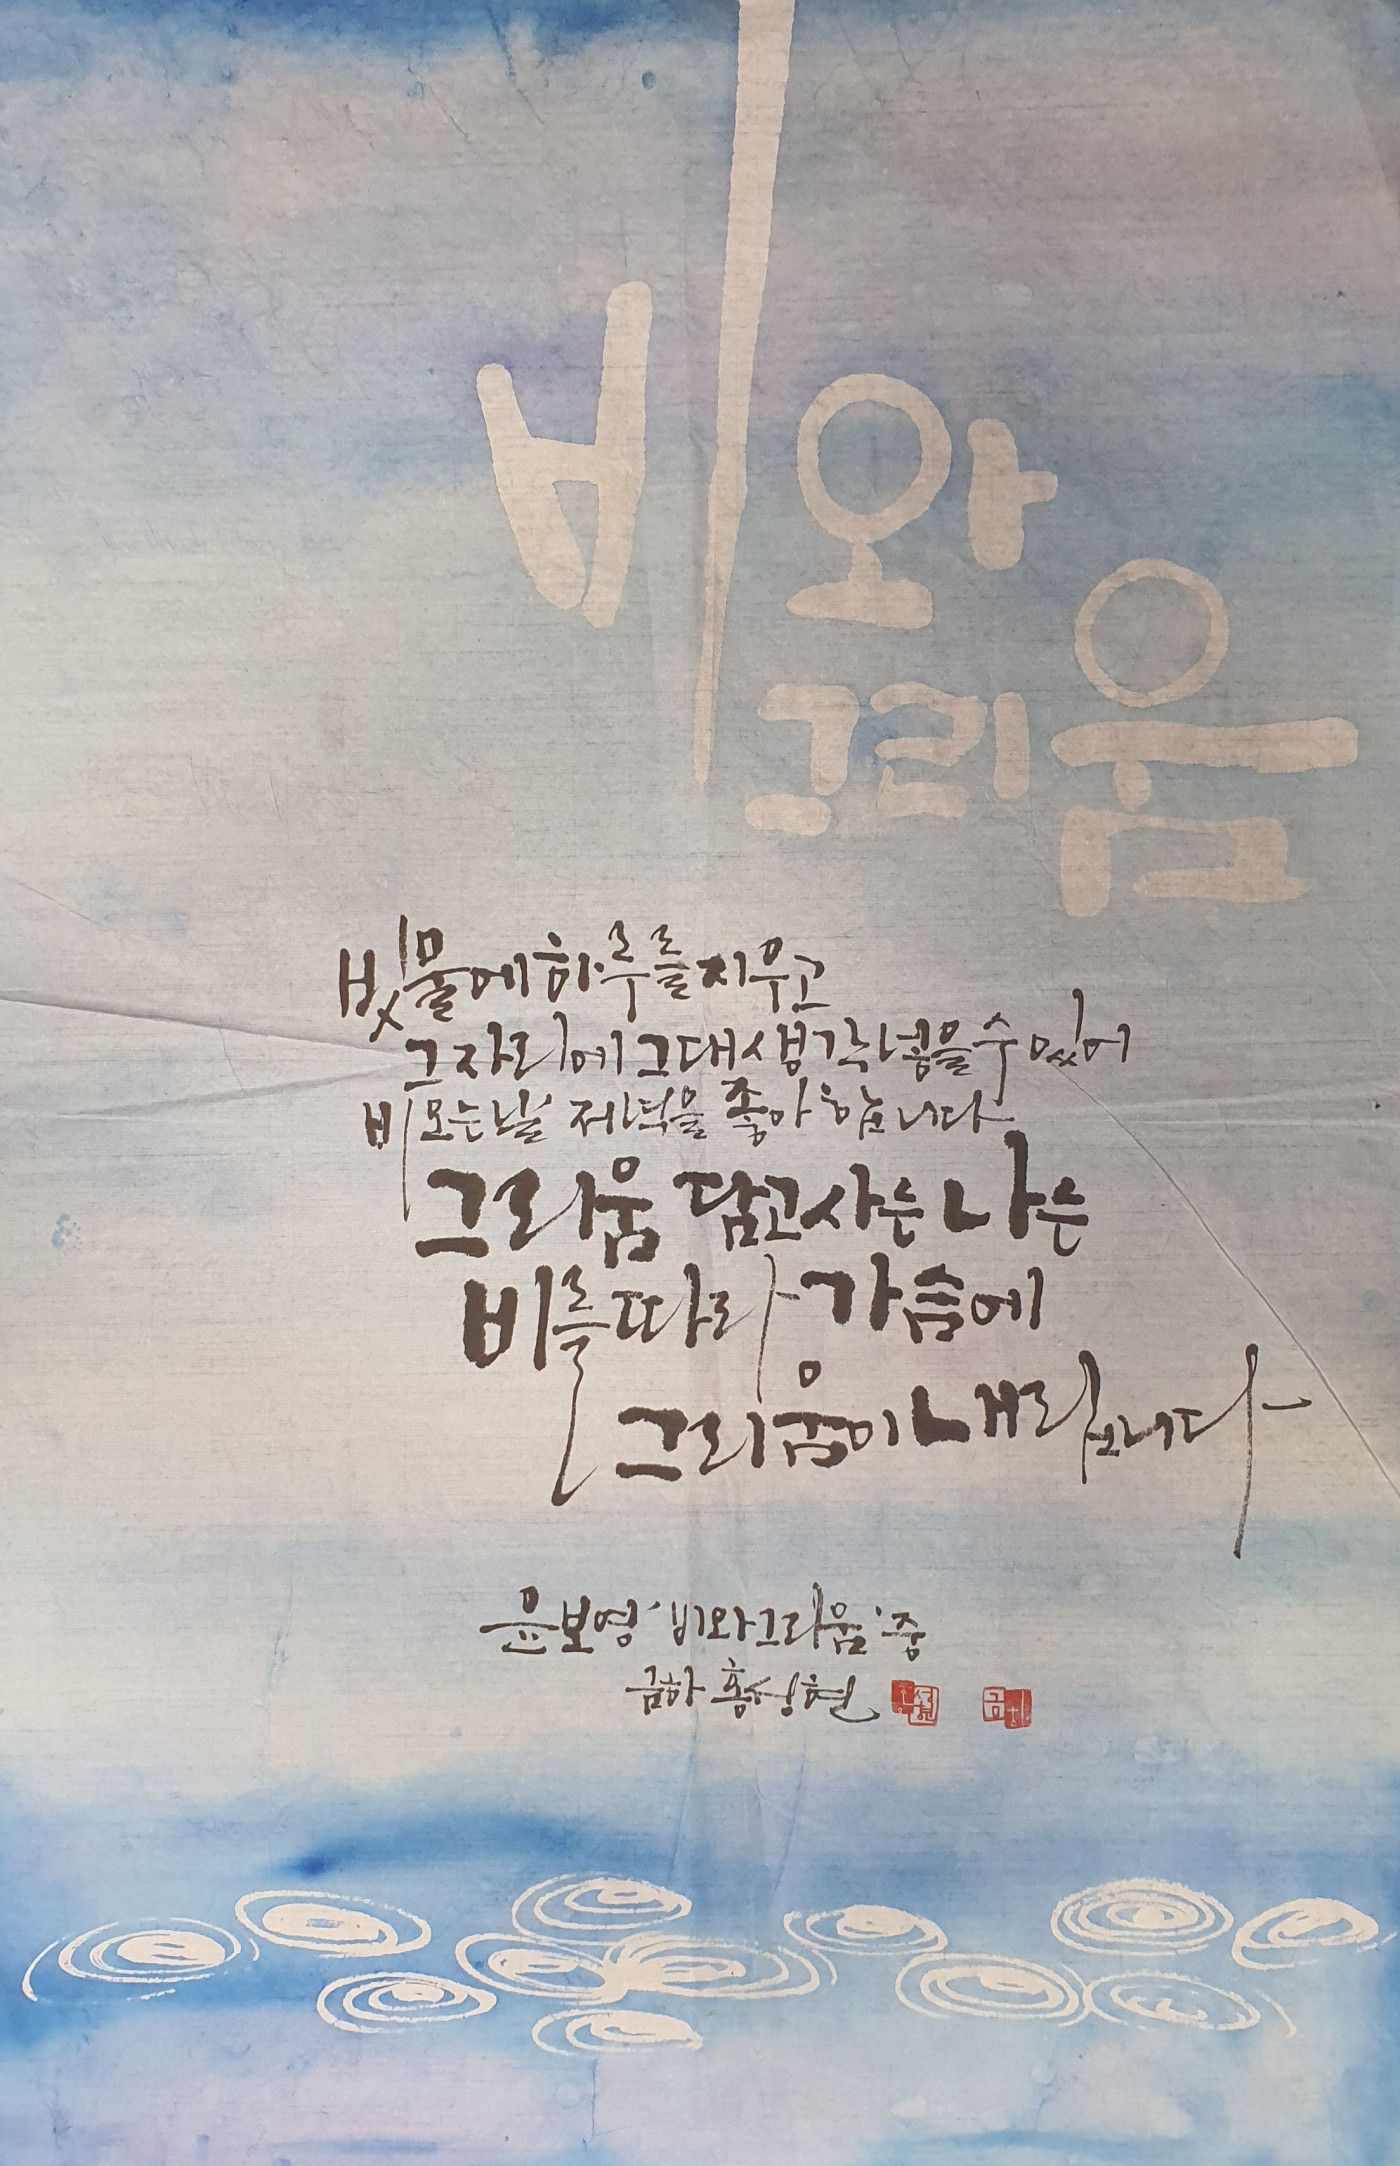 비와
그리움
빗물에 하루를 지우고
그 자리에 그대 생각 넣을 수 있어
비 오는 날 저녁을 좋아합니다
그리움 담고 사는 나는
비를 따라 가슴에
그리움이 내립니다
윤보영 '비와 그리움' 중
금하 홍성현
금하